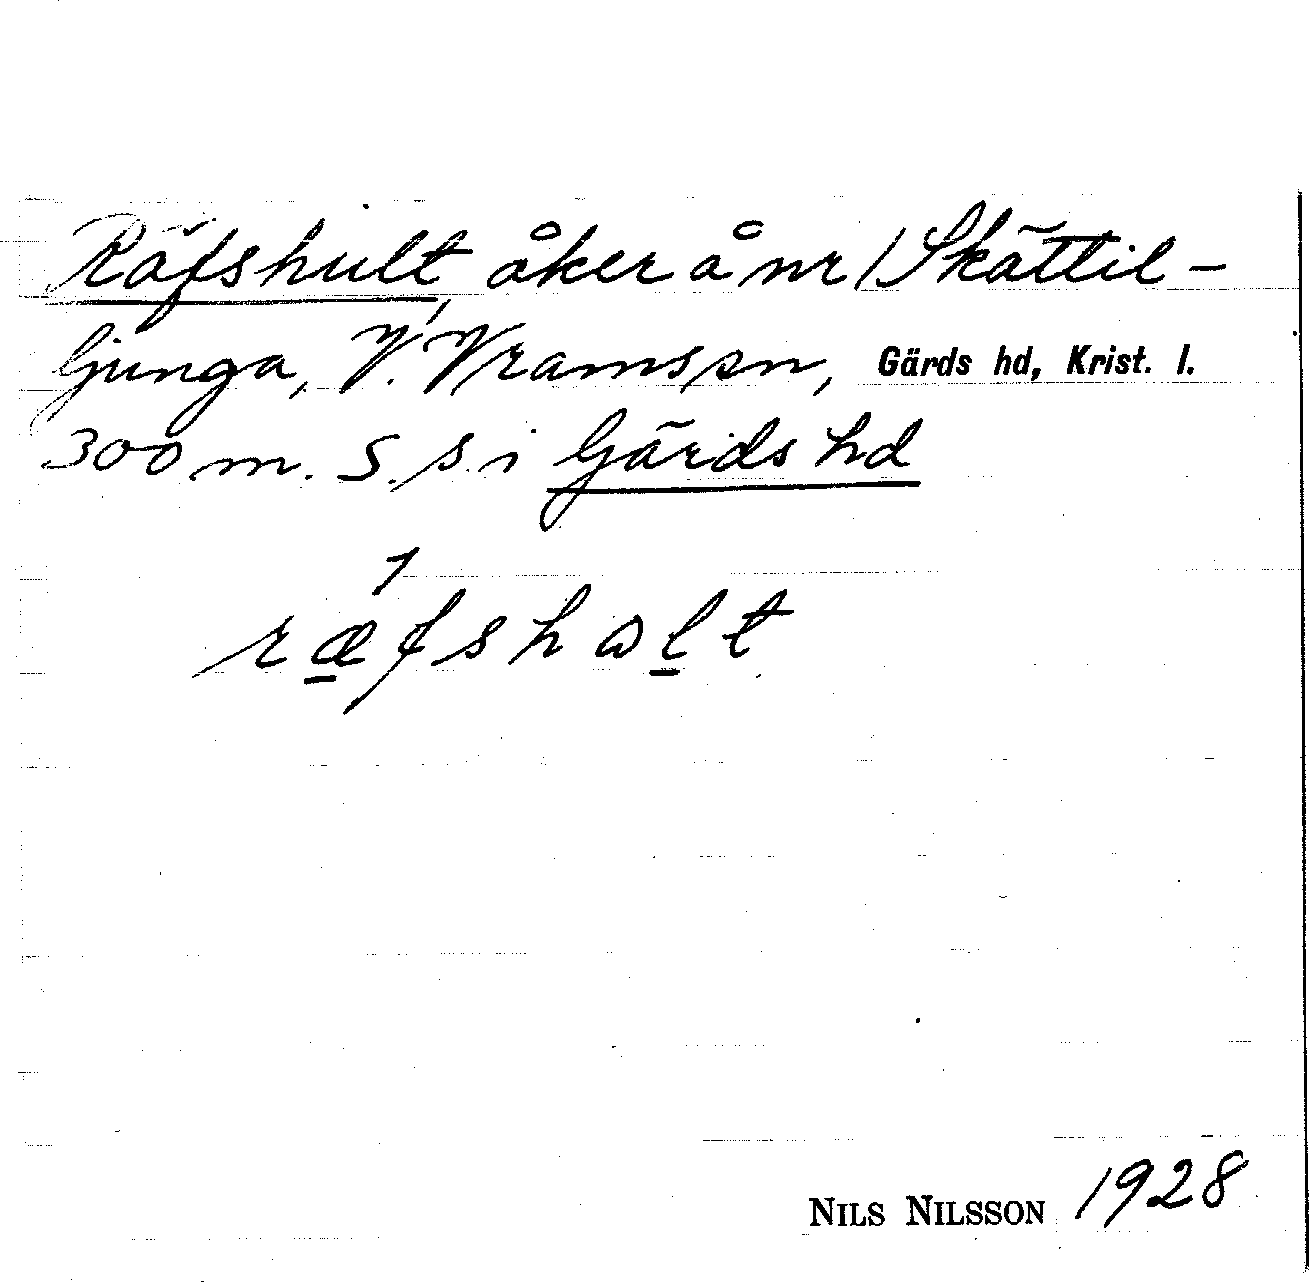 Räfshult, åker å nr 1 Skättil-
ljunga, V. Vrams sn, Gärds hd, Krist. l.
300 m. S. s. i Gärds hd
ræfshωlt
NILS NILSSON 1928